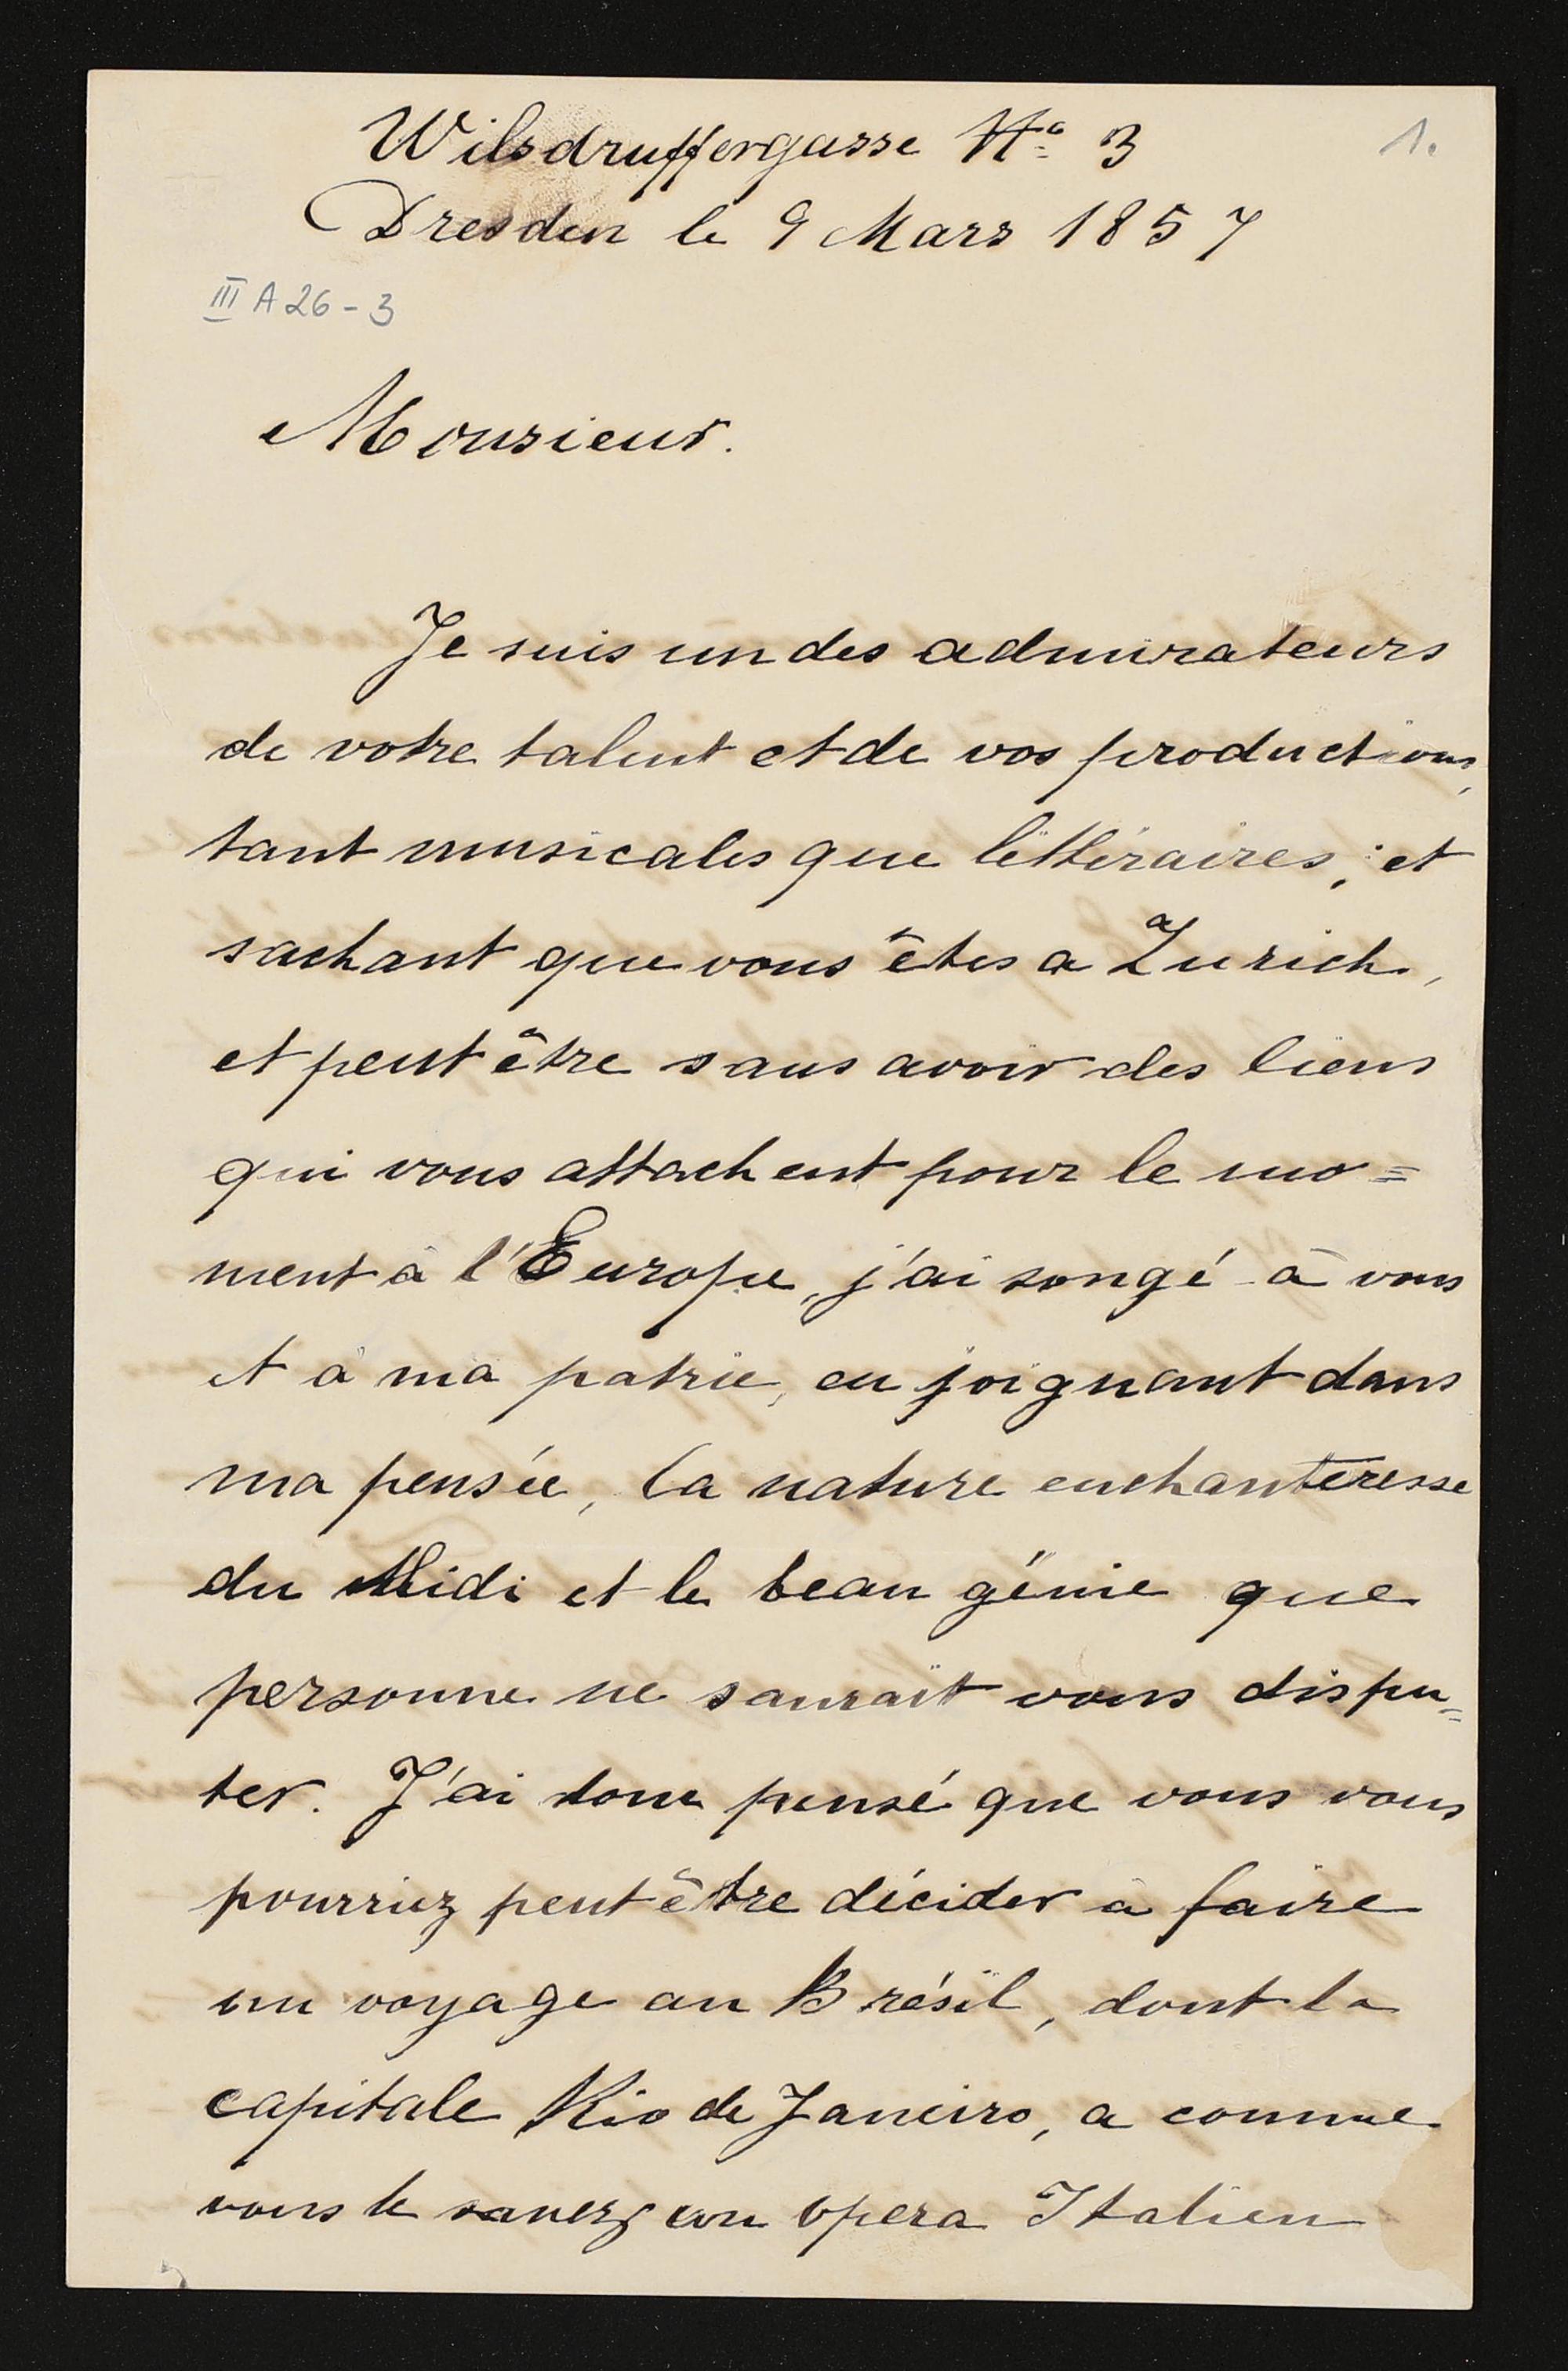 Wilsdruffergasse Nº 3
1.
Dresden le 9 Mars 1857
III A 26-3
Monsieur.
Je suis un des admirateurs
de votre talent et de vos productions,
tant musicales que littéraires; et
sachant que vous êtes a Zurich,
et peut être sans avoir des liens
qui vous attachent pour le mo=
ment à l'Europe, j'ai songé à vous
et à ma patrie, en joignant dans
ma pensée, la nature enchanteresse
du Midi et le beau génie que
personne ne saurait vous dispu=
ter. J'ai donc pensé que vous vous
pourriez peut être décider à faire
un voyage au Brésil, dont la
capitale Rio de Janeiro, a comme
vous le savez un opera Italien